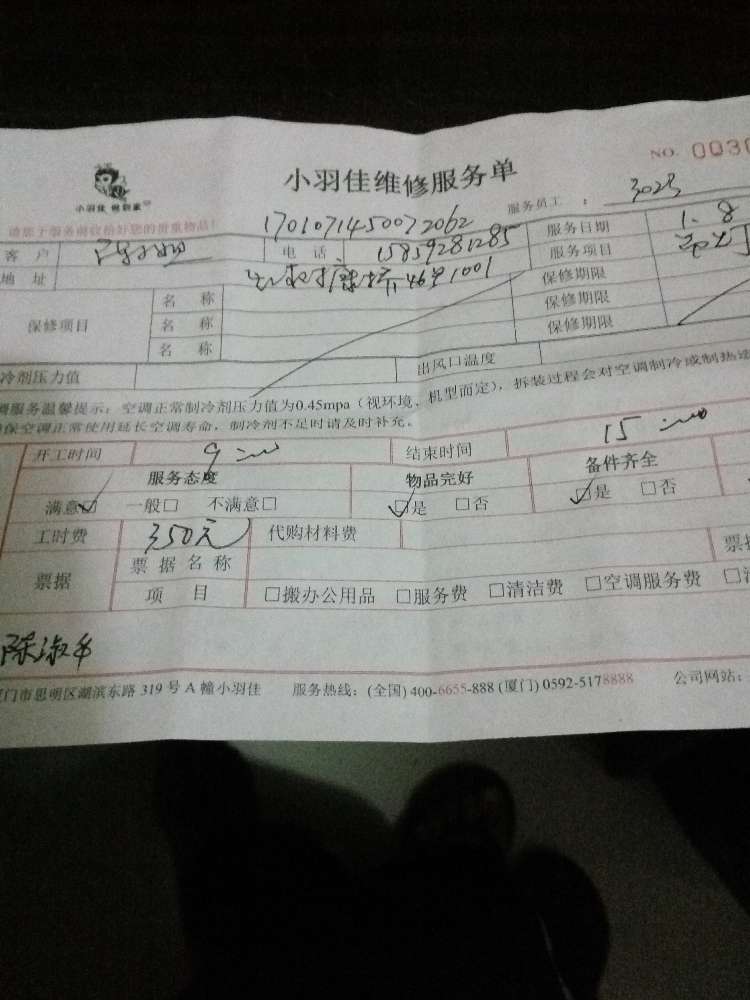 小羽佳维修服务单
NO. 003
小羽佳 做到家
请您于服务前收拾好您的贵重物品!
1701071450072062
服务员工 : 3023
客 户 电 话 15859281285 服务日期 1.8
地 址 46号1001 服务项目
保修项目 名 称 保修期限
名 称 保修期限
名 称 保修期限
冷剂压力值 出风口温度
调服务温馨提示:空调正常制冷剂压力值为0.45mpa(视环境、机型而定),拆装过程会对空调制冷或制热造
保空调正常使用延长空调寿命,制冷剂不足时请及时补充。
开工时间 9:00 结束时间 15:00
服务态度 物品完好 备件齐全
满意☑ 一般□ 不满意□ ☑是 □否 ☑是 □否
工时费 350元 代购材料费
票据 票据名称
项 目 □搬办公用品 □服务费 □清洁费 □空调服务费
陈淑
厦门市思明区湖滨东路 319 号 A 幢小羽佳 服务热线:(全国) 400-6655-888 (厦门) 0592-5178888 公司网站: